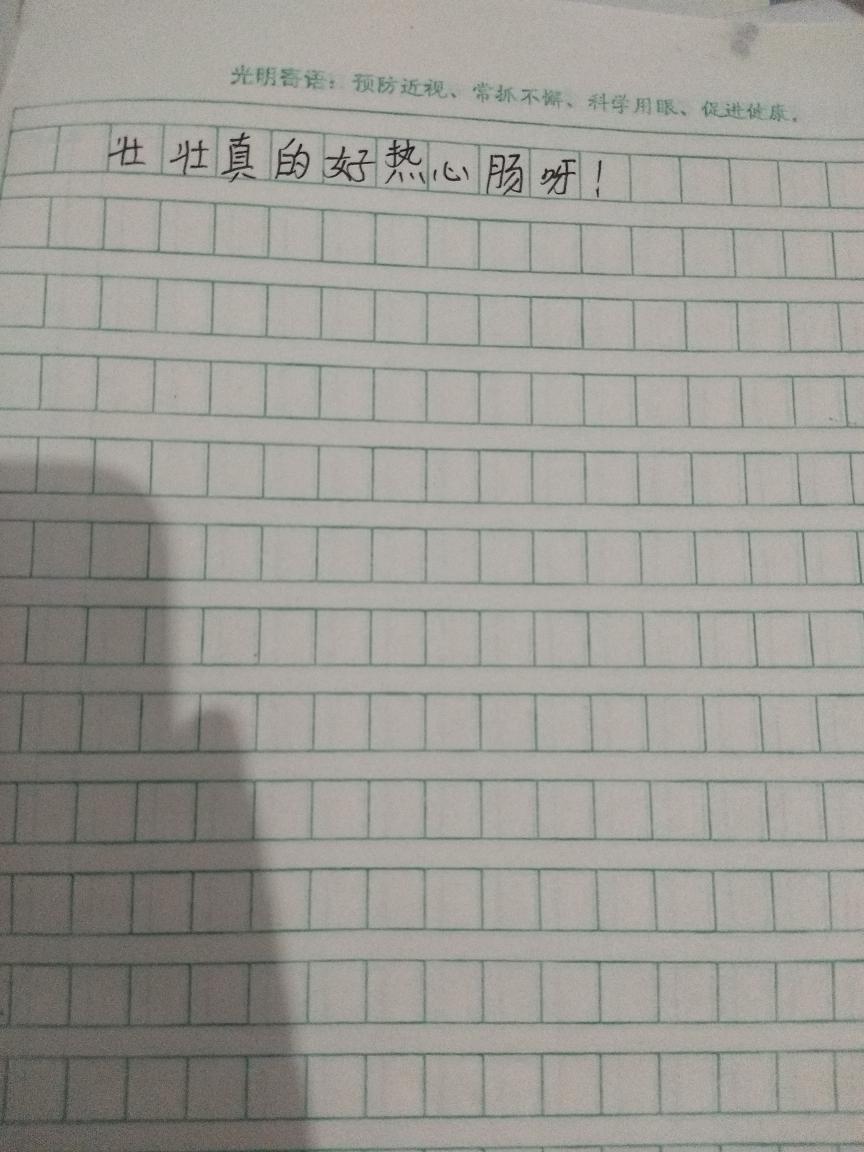 光明寄语：预防近视、常抓不懈、科学用眼、促进健康．
壮壮真的好热心肠呀！